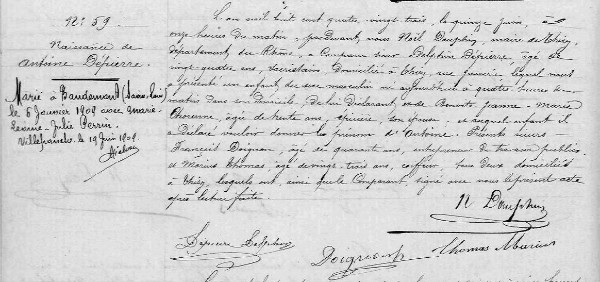 N° 59
Naissance de
Antoine Dépierre.
Marié à Baudemont (Saône-Loire)
le 5 Janvier 1909 avec Marie
Julie Perrin.
Villefranche le 19 juin 1909
L'an mil huit cent quatre-vingt-trois, le quinze juin, à
onze heures du matin, pardevant nous Noël Dauphin, maire de Thizy,
département du Rhône, a comparu sieur Delphin Dépierre, âgé de
vingt quatre ans, domicilié à Thizy, rue lequel nous
a présenté un enfant de sexe masculin né aujourd'hui à quatre heures du
matin dans son domicile, de lui Déclarant, et de Jeanne-Marie
âgée de trente ans, épicière, son épouse, et auquel enfant il
a déclaré vouloir donner les prénoms d'Antoine. Présents sieurs
François Doignon, âgé de quarante ans, entrepreneur de travaux publics
et Marius Thomas âgé de vingt-trois ans, coiffeur, tous deux domiciliés
à Thizy, lesquels ont, ainsi que le Comparant, signé avec nous le présent acte
après lecture faite.
N Dauphin
Dépierre Delphin
Doignon
Thomas Marius